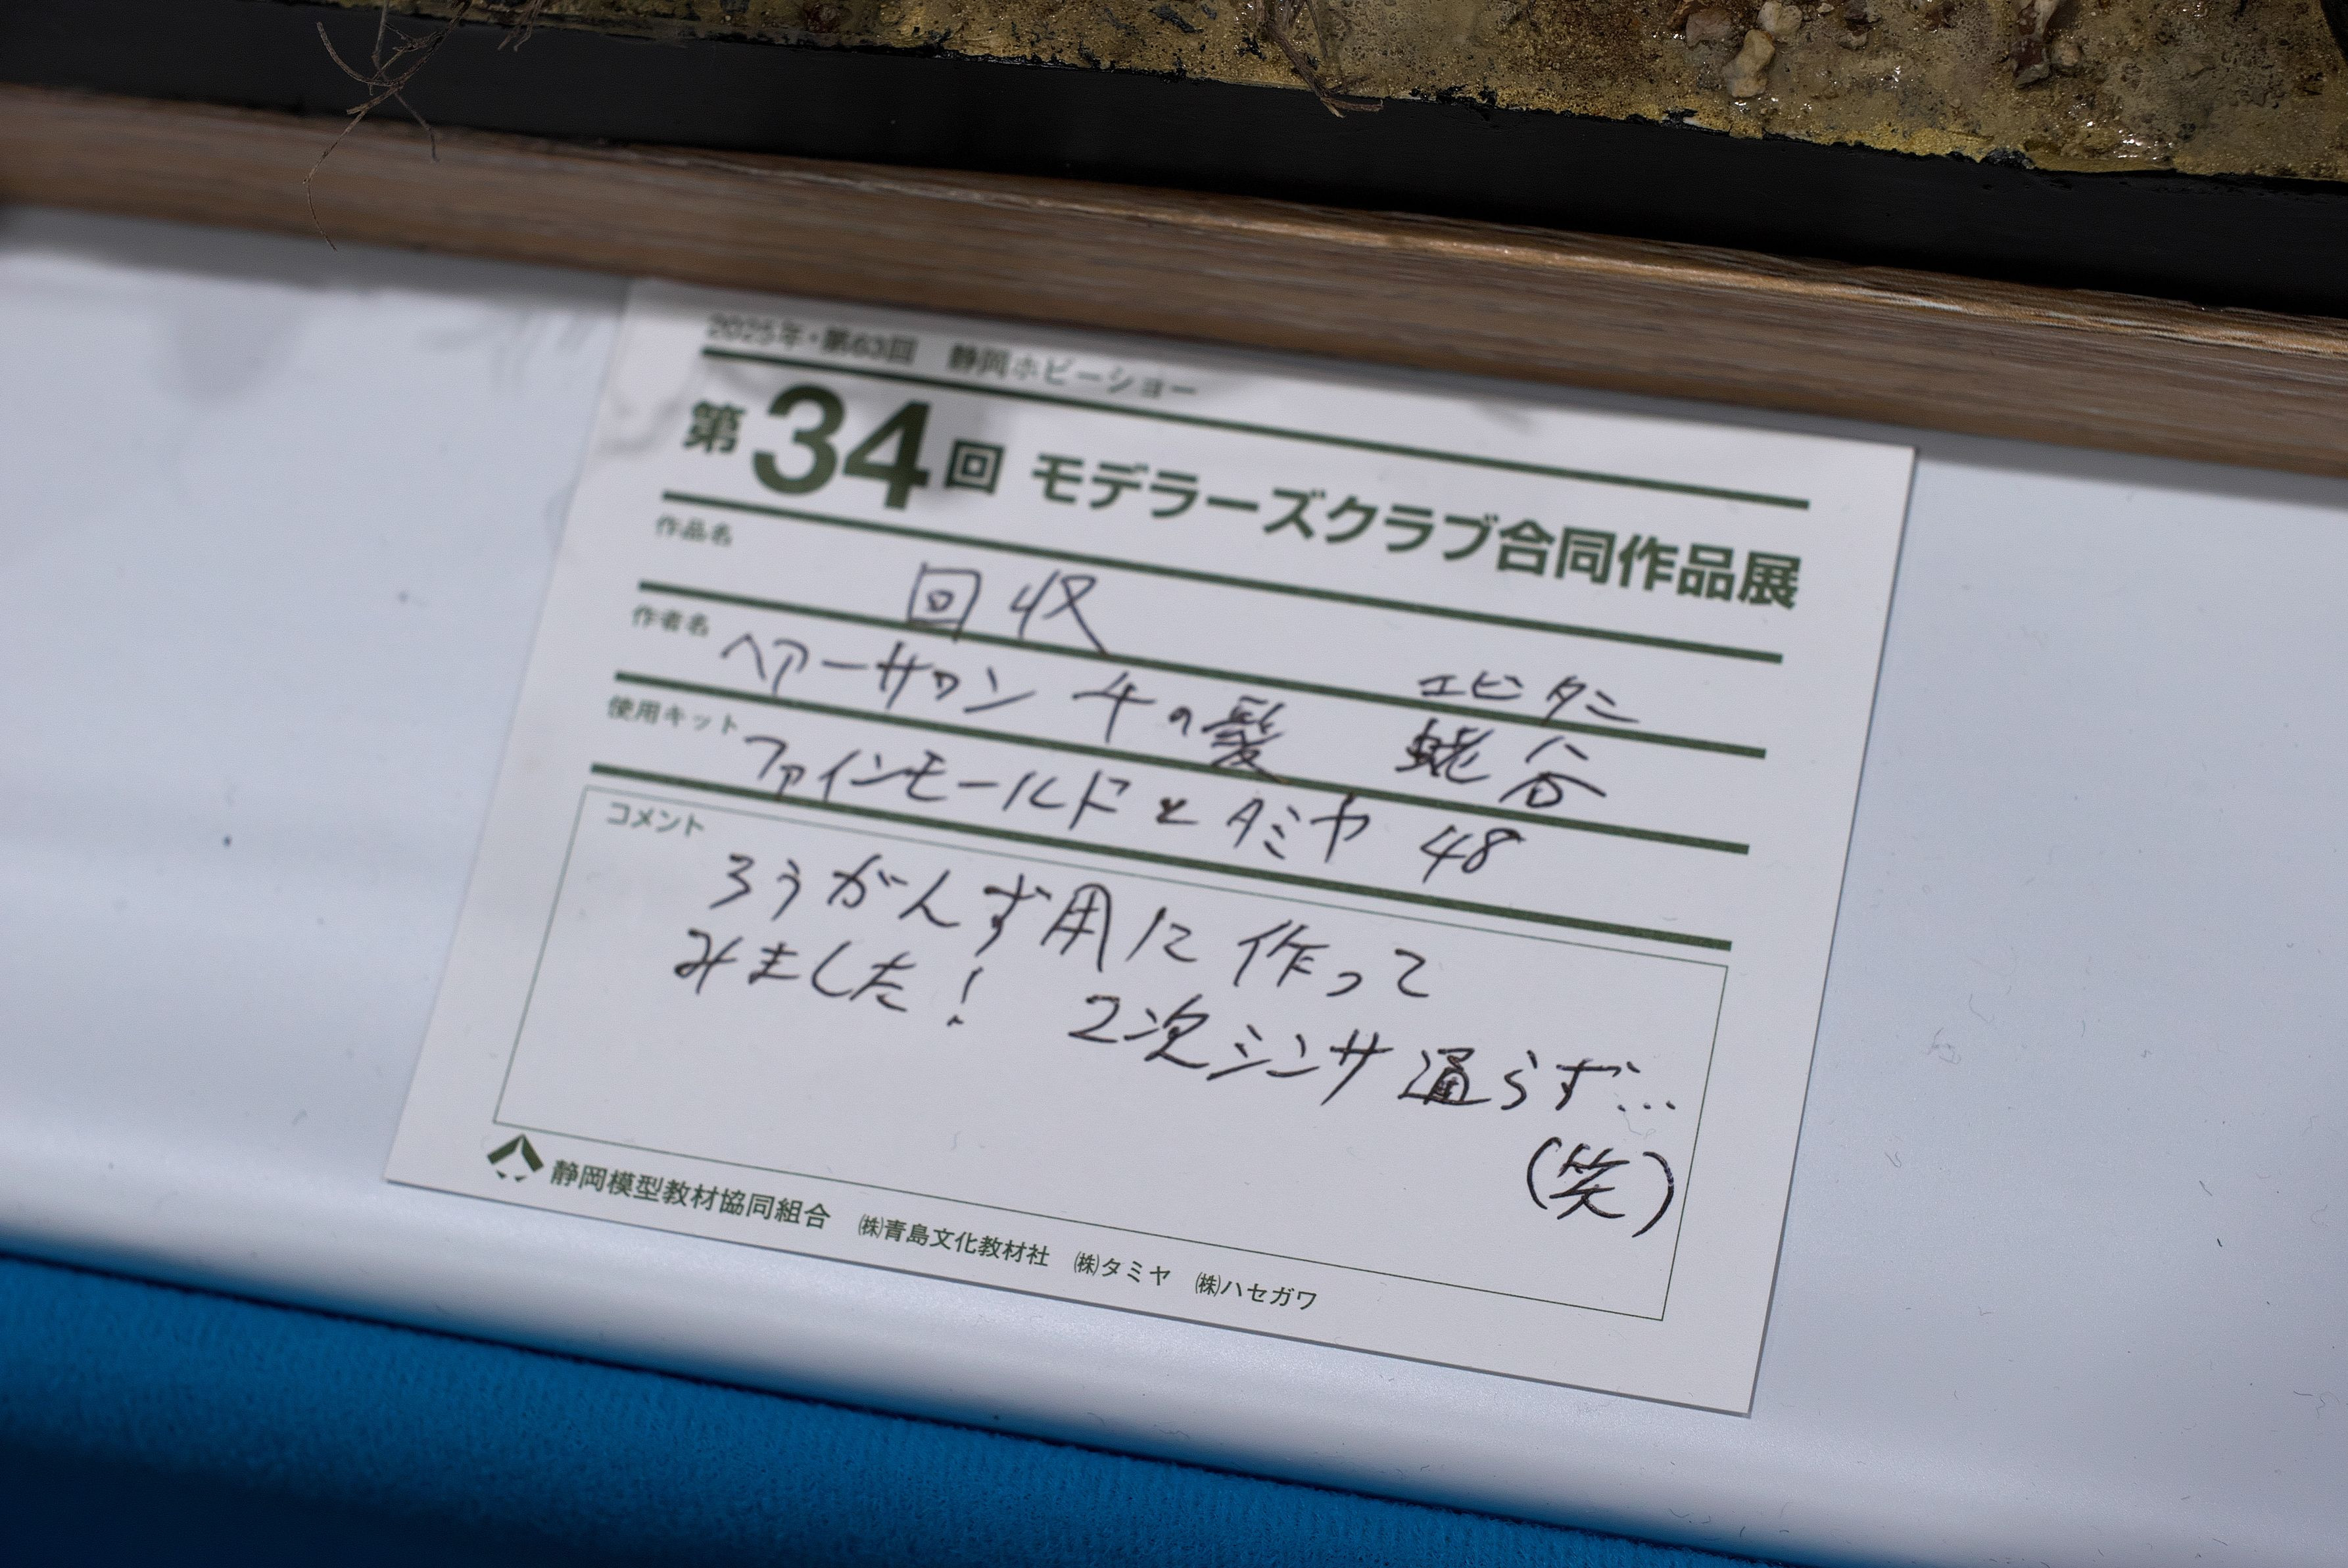 2025年・第63回 静岡ホビーショー
第34回 モデラーズクラブ合同作品展
作品名 回収
エビタニ
作者名 ヘアーサロン 4の髪 蛯谷
使用キット ファインモールドとタミヤ 48
コメント
ろうがんず用に作って
みました! 2次シンサ通らず…
(笑)
静岡模型教材協同組合 ㈱青島文化教材社 ㈱タミヤ ㈱ハセガワ